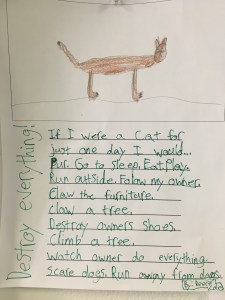 If I were a Cat for
just one day I would...
Pur. Go to sleep. Eat. Play.
Run outside. Folow my owner.
Claw the furniture.
Claw a tree.
Destroy owners shoes.
Climb a tree.
Watch owner do everything.
scare dogs. Run away from dogs.
Destroy everything!
By: